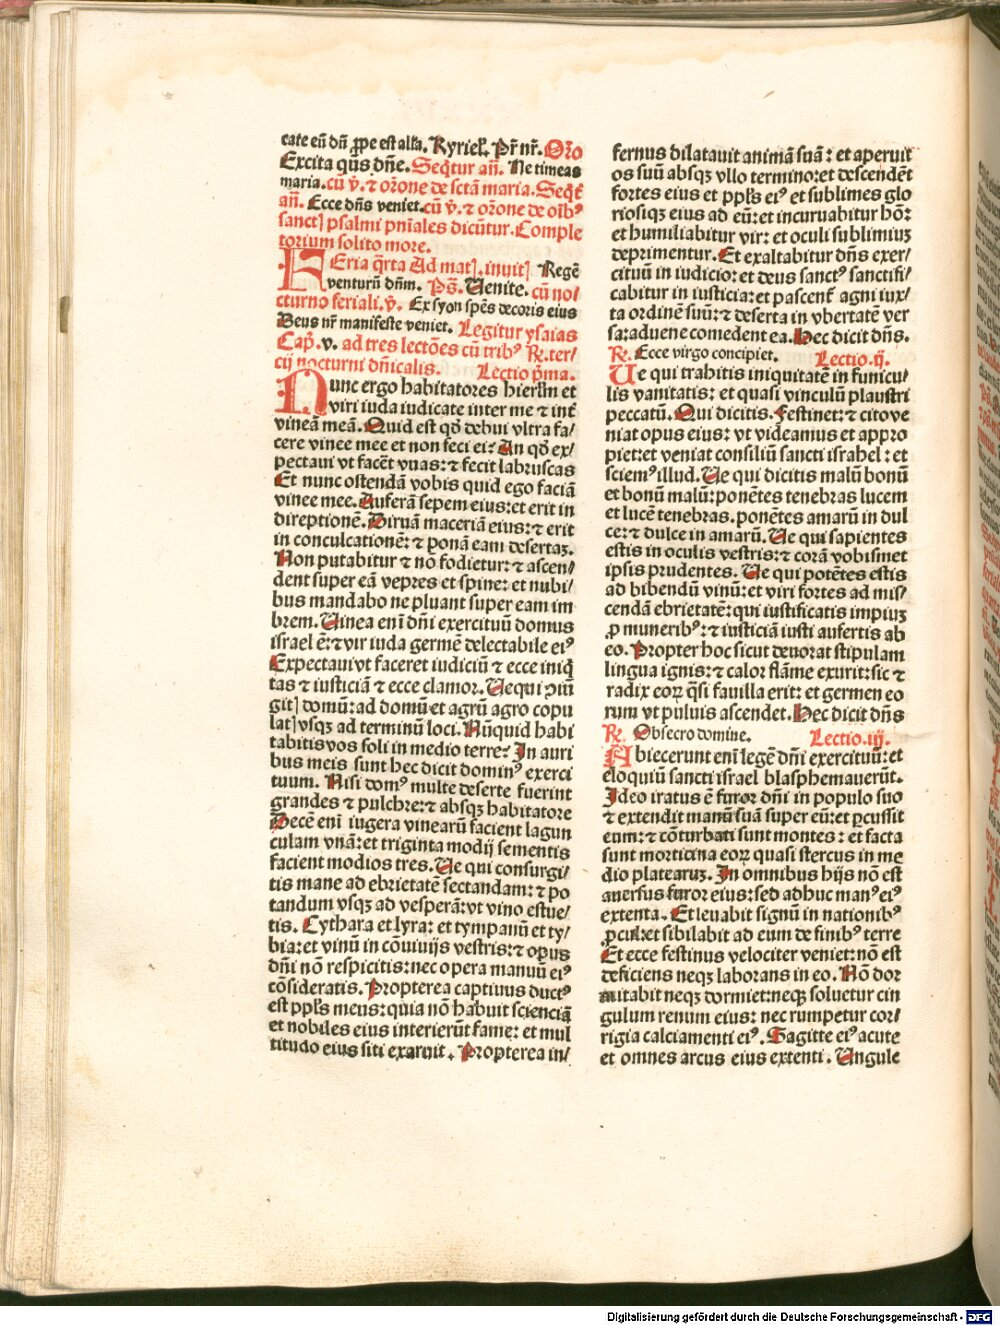 cate eū dū ꝓpe est alľa. Kyriel'. Pr̄ nr̄. Or̄o
Excita qūs dn̄e. Seqr̄tur an̄. Ne timeas
maria. cū ꝟ. ⁊ or̄one de sctā maria. Seqr̄t
an̄. Ecce dn̄s veniet. cū ꝟ. ⁊ or̄one de oībꝰ
sanctꝭ psalmi pn̄iales dicūtur. Comple
torium solito more.
FEria q̄rta Ad matꝭ. inuitꝭ Regē
venturū dn̄m. Ps̄. Uenite. cū no/
cturno feriali. ꝟ. Ex syon spēs decoris eius
Deus nr̄ manifeste veniet. Legitur ysaias
Cap̄. v. ad tres lectōes cū tribꝰ ℞. ter/
cij nocturni dn̄icalis. Lectio p̄ma.
Nunc ergo habitatores hierľm et
viri iuda iudicate inter me ⁊ int̄
vineā meā. Quid est qď debui vltra fa/
cere vinee mee et non feci ei? An qď ex/
pectaui vt facēt vuas: ⁊ fecit labruscas
Et nunc ostendā vobis quid ego faciā
vinee mee. Auferā sepem eius: et erit in
direptionē. Diruā maceriā eius: ⁊ erit
in conculcationē: ⁊ ponā eam desertaʒ.
Non putabitur ⁊ nō fodietur: ⁊ ascen/
dent super eā vepres et spine: et nubi/
bus mandabo ne pluant super eam im
brem. Uinea enī dn̄i exercituū domus
israel ē: ⁊ vir iuda germē delectabile eiꝰ
Expectaui vt faceret iudiciū ⁊ ecce iniq̄
tas ⁊ iusticiā ⁊ ecce clamor. Ue qui ꝯiū
gitꝭ domū: ad domū et agrū agro copu
latꝭ vsqʒ ad terminū loci. Nūquid habi
tabitis vos soli in medio terre? In auri
bus meis sunt hec dicit dominꝰ exerci
tuum. Nisi domꝰ multe deserte fuerint
grandes ⁊ pulchre: ⁊ absqʒ habitatore
Decē enī iugera vinearū facient lagun
culam vnā: et triginta modij sementis
facient modios tres. Ue qui consurgi/
tis mane ad ebrietatē sectandam: ⁊ po
tandum vsqʒ ad vesperā: vt vino estue/
tis. Cythara et lyra: et tympanū et ty/
bia: et vinū in cōuiuijs vestris: ⁊ opus
dn̄i nō respicitis: nec opera manuū eiꝰ
cōsideratis. Propterea captiuus ductꝰ
est ppľs meus: quia nō habuit scienciā
et nobiles eius interierūt fame: et mul
titudo eius siti exaruit. Propterea in/
fernus dilatauit animā suā: et aperuit
os suū absqʒ vllo termino: et descendēt
fortes eius et ppľs eiꝰ et sublimes glo
riosiqʒ eius ad eū: et incuruabitur hō:
et humiliabitur vir: et oculi sublimiuʒ
deprimentur. Et exaltabitur dn̄s exer/
cituū in iudicio: et deus sanctꝰ sanctifi/
cabitur in iusticia: et pascent̄ agni iux/
ta ordinē suū: ⁊ deserta in vbertatē ver
sa: aduene comedent ea. Hec dicit dn̄s.
℞. Ecce virgo concipiet. Lectio .ij.
Ue qui trahitis iniquitatē in funicu/
lis vanitatis: et quasi vinculū plaustri
peccatū. Qui dicitis. Festinet: ⁊ cito ve
niat opus eius: vt videamus et appro
piet: et veniat consiliū sancti israhel: et
sciemꝰ illud. Ue qui dicitis malū bonū
et bonū malū: ponētes tenebras lucem
et lucē tenebras. ponētes amarū in dul
ce: ⁊ dulce in amarū. Ue qui sapientes
estis in oculis vestris: ⁊ corā vobismet
ipsis prudentes. Ue qui potētes estis
ad bibendū vinū: et viri fortes ad mis/
cendā ebrietatē: qui iustificatis impiuʒ
ꝓ muneribꝰ: ⁊ iusticiā iusti aufertis ab
eo. Propter hoc sicut deuorat stipulam
lingua ignis: ⁊ calor flāme exurit: sic ⁊
radix eoꝝ q̄si fauilla erit: et germen eo
rum vt puluis ascendet. Hec dicit dn̄s
℞. Obsecro domine. Lectio .iij.
Abiecerunt enī legē dn̄i exercituū: et
eloquiū sancti israel blasphemauerūt.
Ideo iratus ē furor dn̄i in populo suo
⁊ extendit manū suā super eū: et ꝑcussit
eum: ⁊ cōturbati sunt montes: et facta
sunt morticina eoꝝ quasi stercus in me
dio platearuʒ. In omnibus hijs nō est
auersus furor eius: sed adhuc manꝰ eiꝰ
extenta. Et leuabit signū in nationibꝰ
ꝓcul: et sibilabit ad eum de finibꝰ terre
Et ecce festinus velociter veniet: nō est
deficiens neqʒ laborans in eo. Nō dor
mitabit neqʒ dormiet: neqʒ soluetur cin
gulum renum eius: nec rumpetur cor/
rigia calciamenti eiꝰ. Sagitte eiꝰ acute
et omnes arcus eius extenti. Ungule
Digitalisierung gefördert durch die Deutsche Forschungsgemeinschaft - DFG